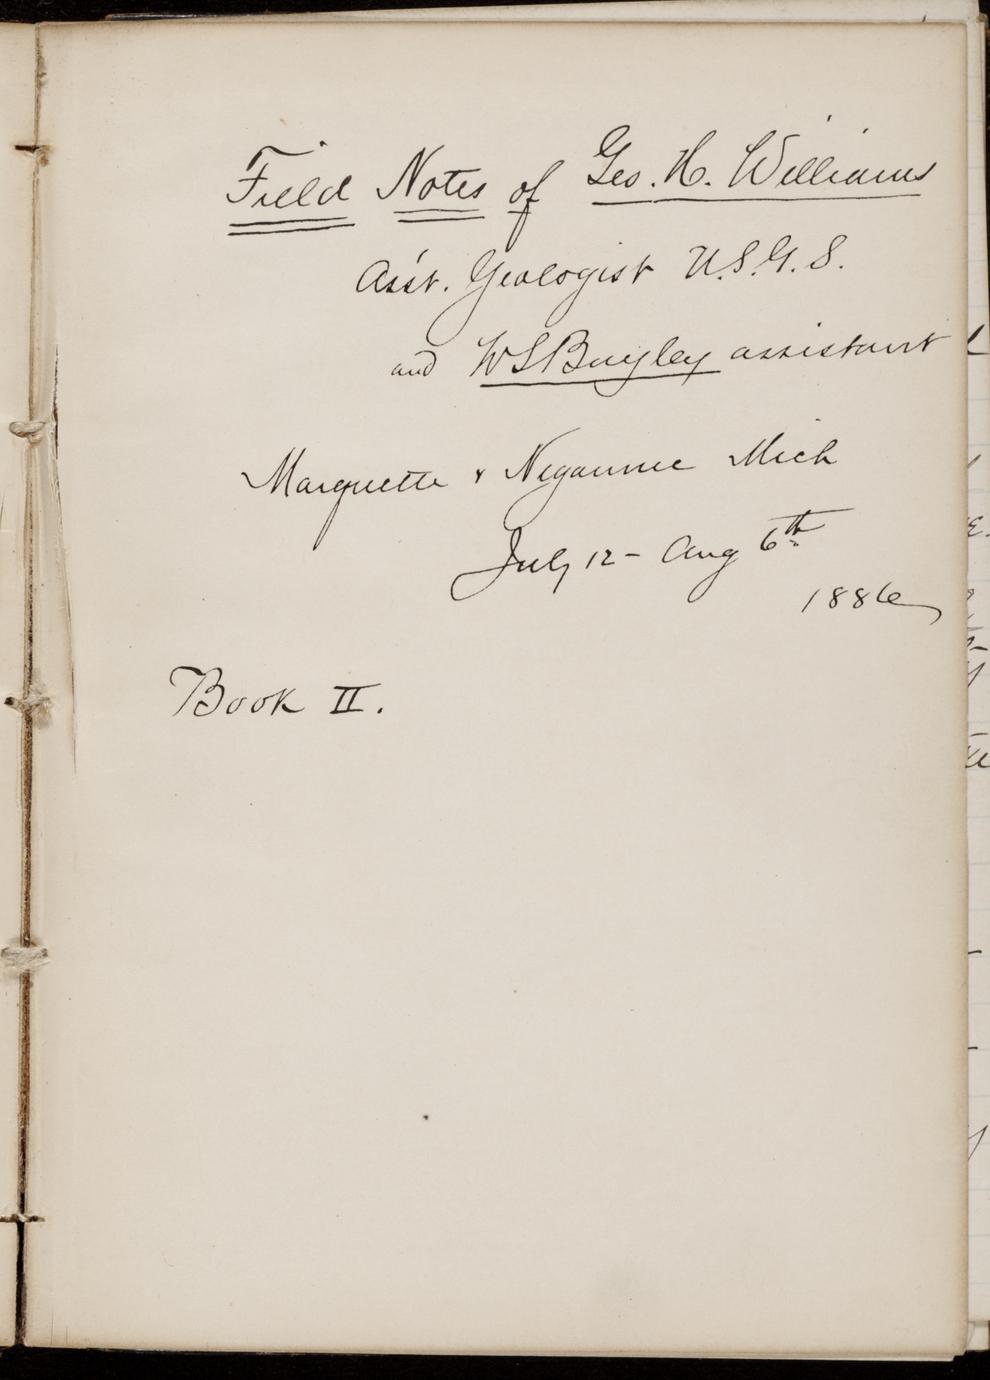 Field Notes of Geo. H. Williams
Ass't. Geologist U.S.G.S.
and WS Bayley assistant
Marquette & Negaunee Mich
July 12 - Aug 6th
1886
Book II.